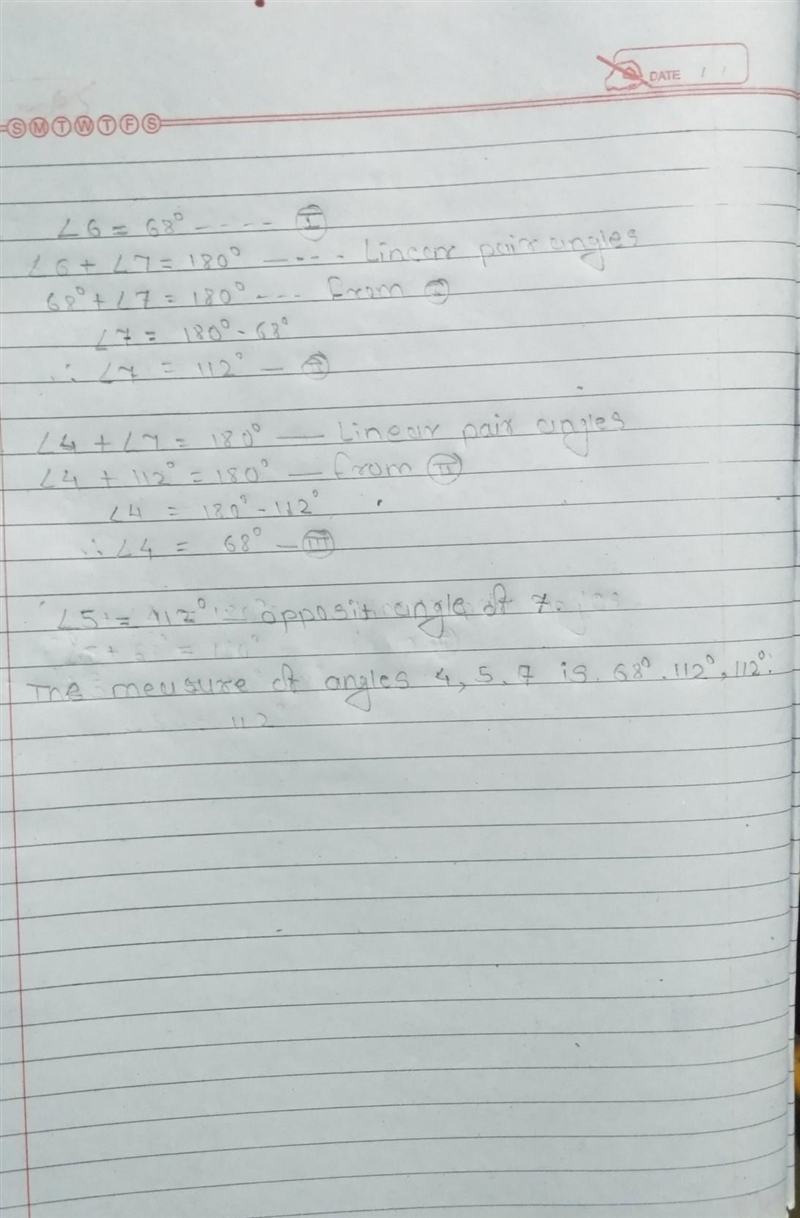 DATE / /
S M T W T F S
∠6 = 68° ---- Ⅰ
∠6 + ∠7 = 180° ---- Linear pair angles
68° + ∠7 = 180° --- from Ⅰ
∠7 = 180° - 68°
∴ ∠7 = 112° — Ⅱ
∠4 + ∠7 = 180° — Linear pair angles
∠4 + 112° = 180° — from Ⅱ
∠4 = 180° - 112°
∴ ∠4 = 68° — Ⅲ
∠5 = 112° - opposit angle of 7.
The measure of angles 4, 5, 7 is 68°, 112°, 112°.
112